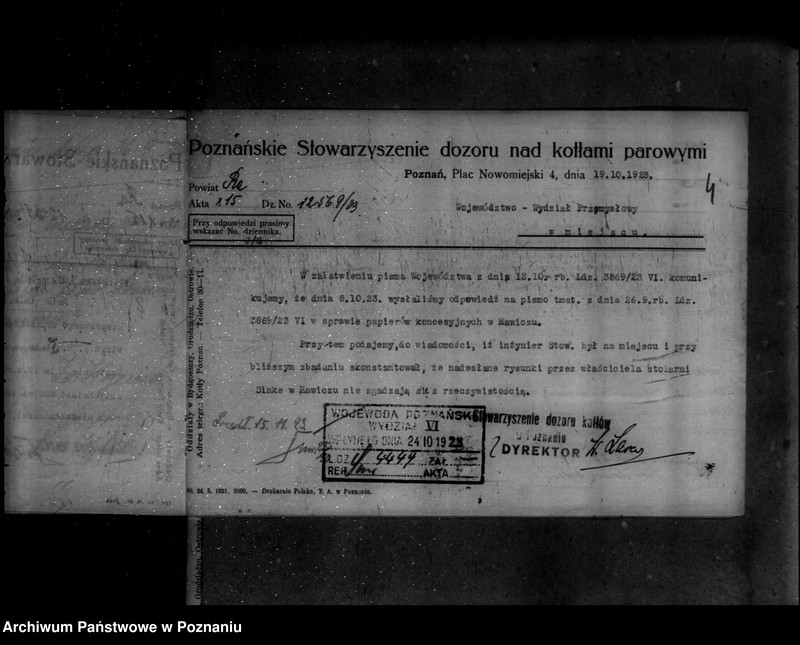 Poznańskie Stowarzyszenie dozoru nad kotłami parowymi
Poznań, Plac Nowomiejski 4, dnia 19.10.1923.
4
Powiat Ra
Akta 215 Dz. No. 12569/23
Przy odpowiedzi prosimy
wskazać No. dziennika.
Województwo - Wydział Przemysłowy
w miejscu.
W załatwieniu pisma Województwa z dnia 12.10. rb. Ldz. 3869/23 VI. komuni-
kujemy, że dnia 8.10.23. wysłaliśmy odpowiedź na pismo tmst. z dnia 26.9.rb. Ldz.
3869/23 VI w sprawie papierów koncesyjnych w Rawiczu.
Przytem podajemy, do wiadomości, iż inżynier Stow. był na miejscu i przy
bliższym zbadaniu skonstantował, że nadesłane rysunki przez właściciela stolarni
Sinke w Rawiczu nie zgadzają się z rzeczywistością.
Oddziały w Bydgoszczy, Grudziądzu, Ostrowie.
Adres telegr.: Kotły Poznań. — Telefon 30-11.
15. 11. 23
WOJEWODA POZNAŃSKI
WYDZIAŁ VI
WPŁYNĘŁO DNIA 24 10 1923
L. DZ. 4449 ZAŁ.
REF. AKTA
Stowarzyszenie dozoru kotłów
w Poznaniu
DYREKTOR
24. 5. 1921. 3000. — Drukarnia Polska, T. A. w Poznaniu.
Grudziądzu, Ostrowie.
Archiwum Państwowe w Poznaniu